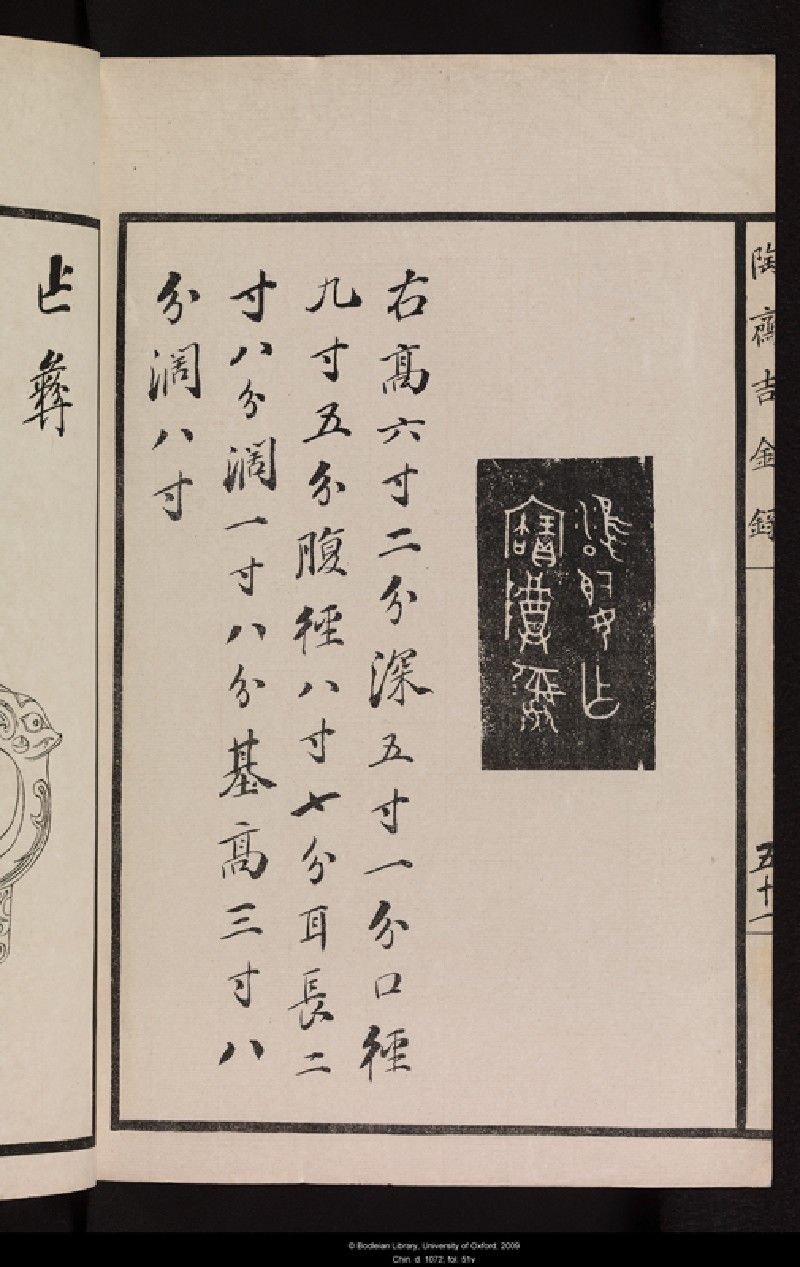 陶齋吉金錄
五十一
右高六寸二分深五寸一分口徑
九寸五分腹徑八寸七分耳長二
寸八分濶一寸八分基高三寸八
分濶八寸
彝
© Bodleian Library, University of Oxford, 2009
Chin. d. 1072; fol. 51v